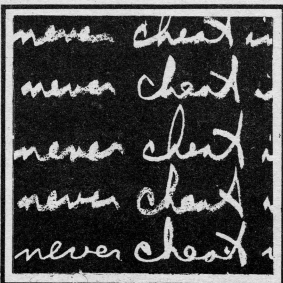 never cheat i
never cheat i
never cheat i
never cheat i
never cheat i